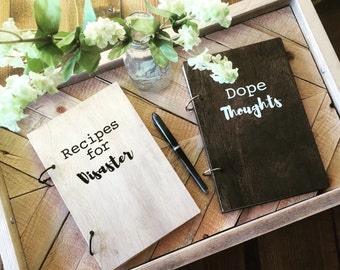 Recipes
for
Disaster
Dope
Thoughts